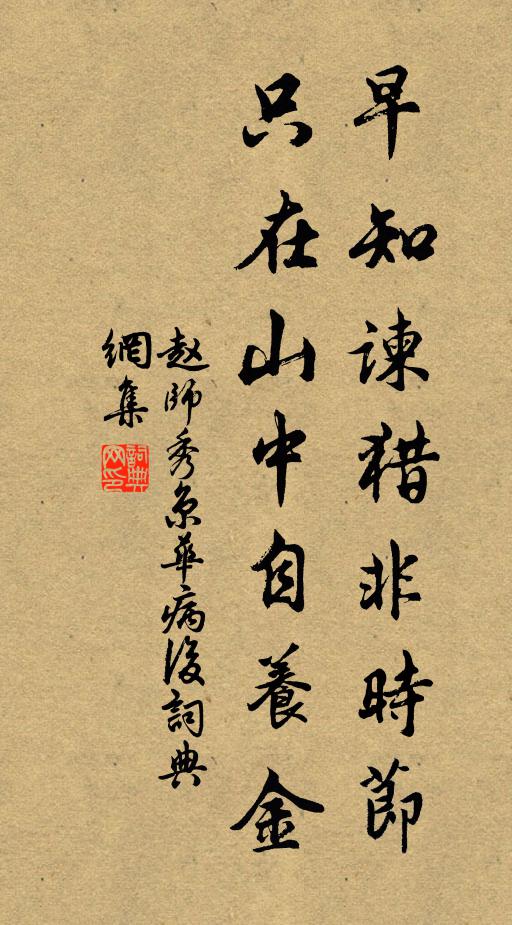 早知谏猎非時節
只在山中自養金
赵師秀京華病後詞典
網集
詞典网印